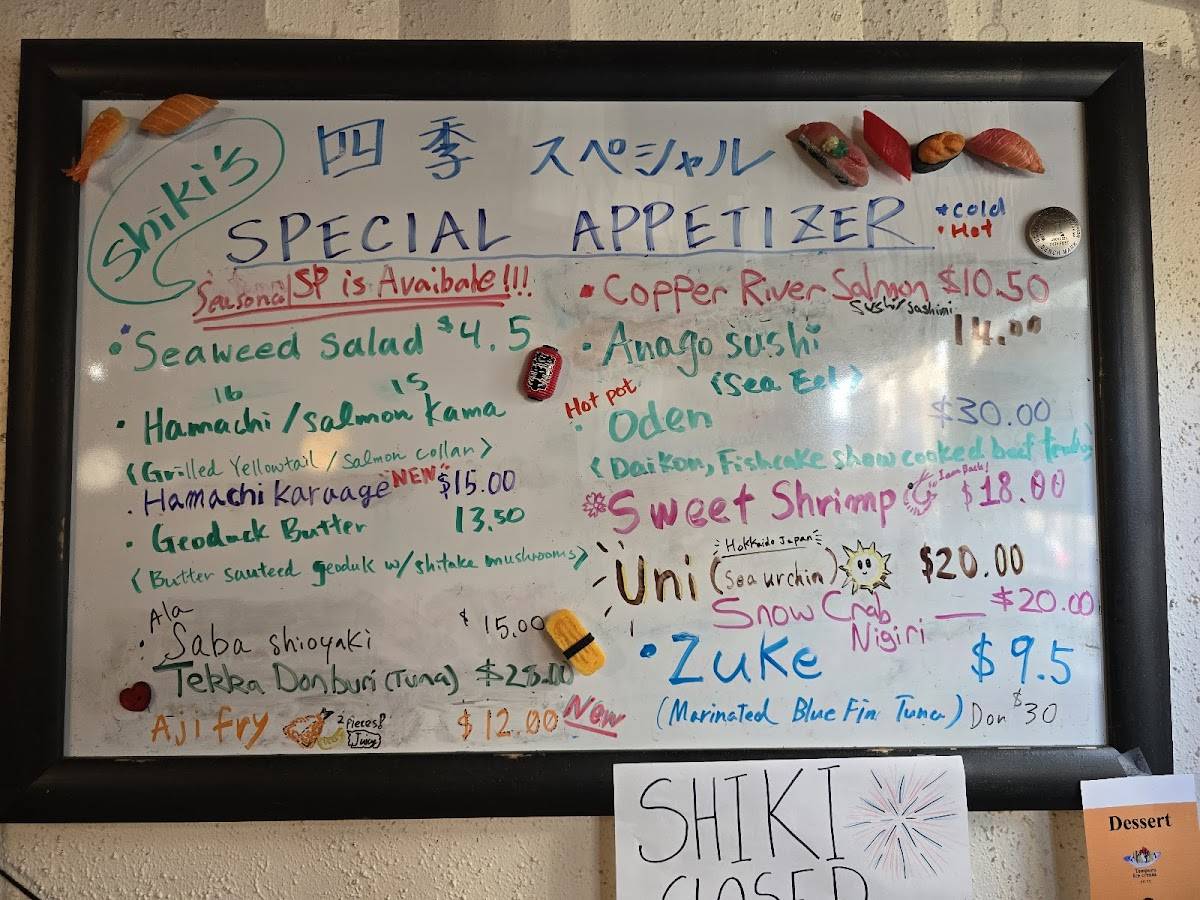 Shiki's
四季 スペシャル
SPECIAL APPETIZER
*Cold
• Hot
Seasonal SP is Avaibale!!!
• Seaweed Salad $4.5
16 15
• Hamachi/Salmon Kama
(Grilled Yellowtail/Salmon collar)
• Hamachi Karaage "NEW" $15.00
• Geoduck Butter 13.50
(Butter sauteed geoduk w/shitake mushrooms)
Ala
• Saba shioyaki $15.00
Tekka Donburi (Tuna)
Aji fry 2 pieces! Juicy $12.00 New
• Copper River Salmon $10.50
Sushi/sashimi
• Anago sushi 14.00
(Sea Eel)
Hot pot
• Oden $30.00
(Daikon, Fishcake show cooked beef
Sweet Shrimp I am Back! $18.00
Hokkaido Japan
Uni (Sea urchin) $20.00
Snow Crab $20.00
Nigiri
• Zuke $9.5
(Marinated Blue Fin Tuna) Don $30
SHIKI
CLOSED
Dessert